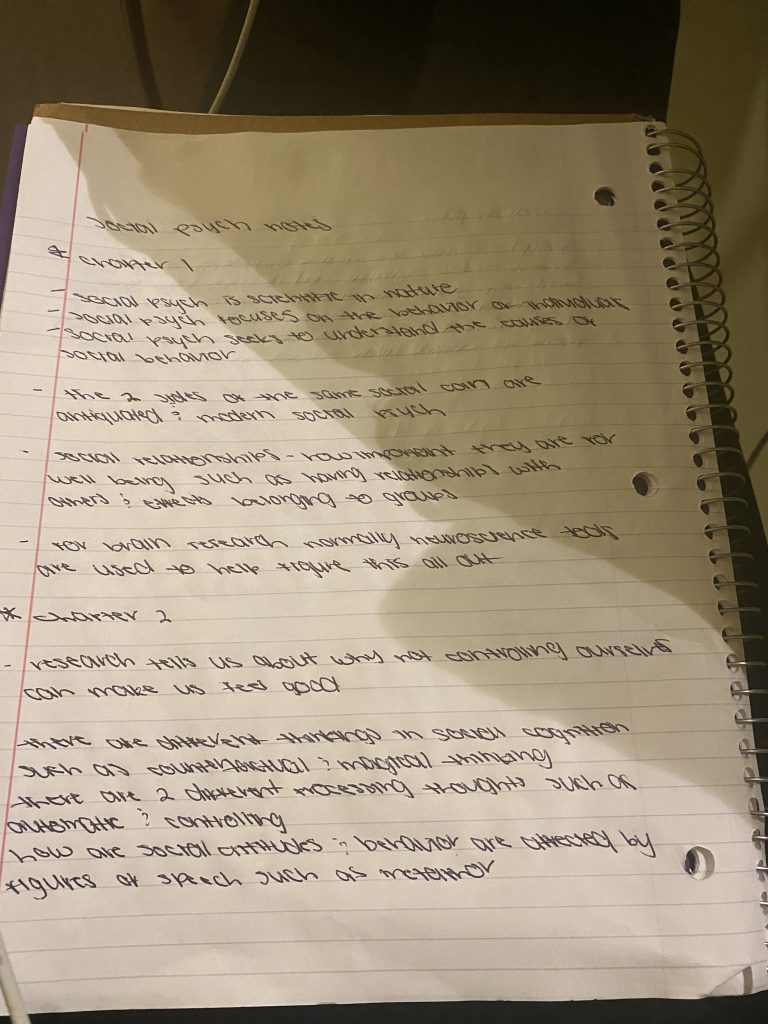 social psych notes
* chapter 1
- social psych is scientific in nature
- social psych focuses on the behavior of individuals
- social psych seeks to understand the causes of
social behavior
- the 2 sides of the same social coin are
antiquated & modern social psych
- social relationships - how important they are for
well being such as having relationships with
others & effects belonging to groups
- for brain research normally neuroscience tools
are used to help figure this all out
* chapter 2
- research tells us about why not controlling ourselves
can make us feel good
there are different thinkings in social cognition
such as counterfactual & magical thinking
there are 2 different processing thoughts such as
automatic & controlling
how are social attitudes & behavior are affected by
figures of speech such as metaphor